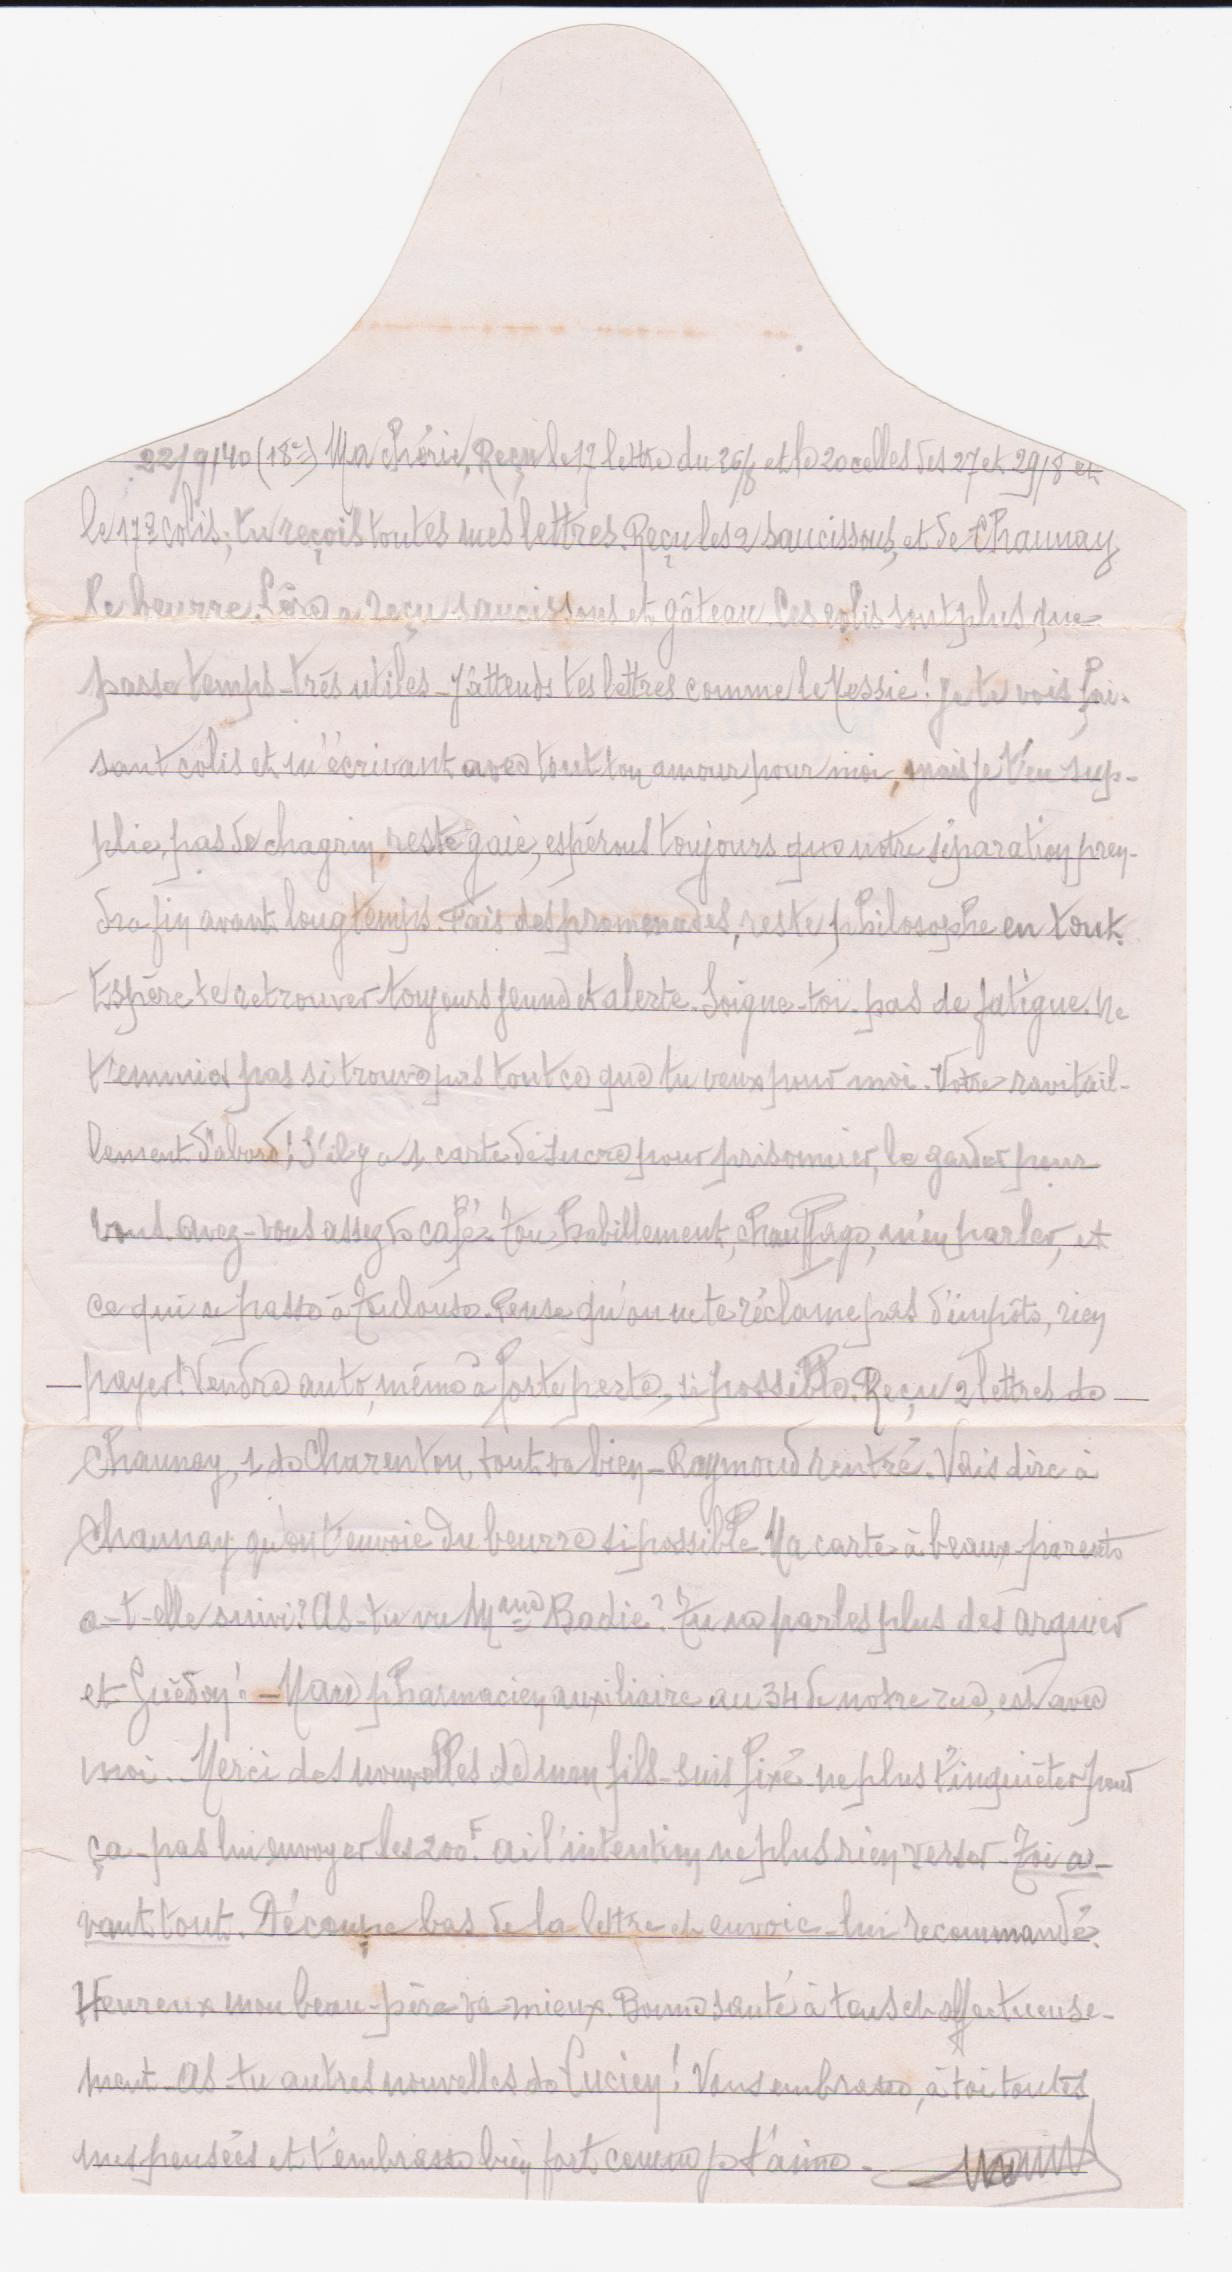 22/9/40 (18e) Ma chérie, Reçu le 17 lettre du 26/8 et le 20 celles des 27 et 29/8 et
le 17e colis; tu reçois toutes mes lettres. Reçu les 2 saucissons, et de Chaunay
le beurre. a reçu saucissons et gâteau. Ces colis sont plus que
passe temps - très utiles - J'attends tes lettres comme le Messie! Je te vois fai-
sant colis et m'écrivant avec tout ton amour pour moi, mais je t'en sup-
plie, pas de chagrin, reste gaie, espérons toujours que notre séparation pren-
dra fin avant longtemps. Fais des promenades, reste philosophe en tout.
Espère te retrouver toujours jeune et alerte. Soigne-toi. pas de fatigue. Ne
t'ennuie pas si trouve pas tout ce que tu veux pour moi. Votre ravitail-
lement d'abord! S'il y a 1 carte de sucre pour prisonnier, la garder pour
vous. avez-vous assez de café? Ton habillement, chauffage, m'en parler, et
ce qui se passe à Toulouse. Pense qu'on ne te réclame pas d'impôts, rien
payer! Vendre auto, même à forte perte, si possible. Reçu 2 lettres de
Chaunay, 1 de Charenton, tout va bien - Raymond rentré. Vais dire à
Chaunay qu'on t'envoie du beurre si possible. Ma carte à beaux-parents
a-t-elle suivi? As-tu vu Mme Badie? Tu ne parles plus des
et - pharmacien auxiliaire au 34 de notre rue, est avec
moi. Merci des nouvelles de mon fils - suis fixé - ne plus t'inquiéter pour
ça - pas lui envoyer les 200F. ai l'intention ne plus rien verser - Toi a-
vant tout. Découpe bas de la lettre et envoie-lui recommandé.
Heureux mon beau-père va mieux. Bonne santé à tous et affectueuse-
ment - As-tu autres nouvelles de Lucien! Vous embrasse, à toi toutes
mes pensées et t'embrasse bien fort comme je t'aime.